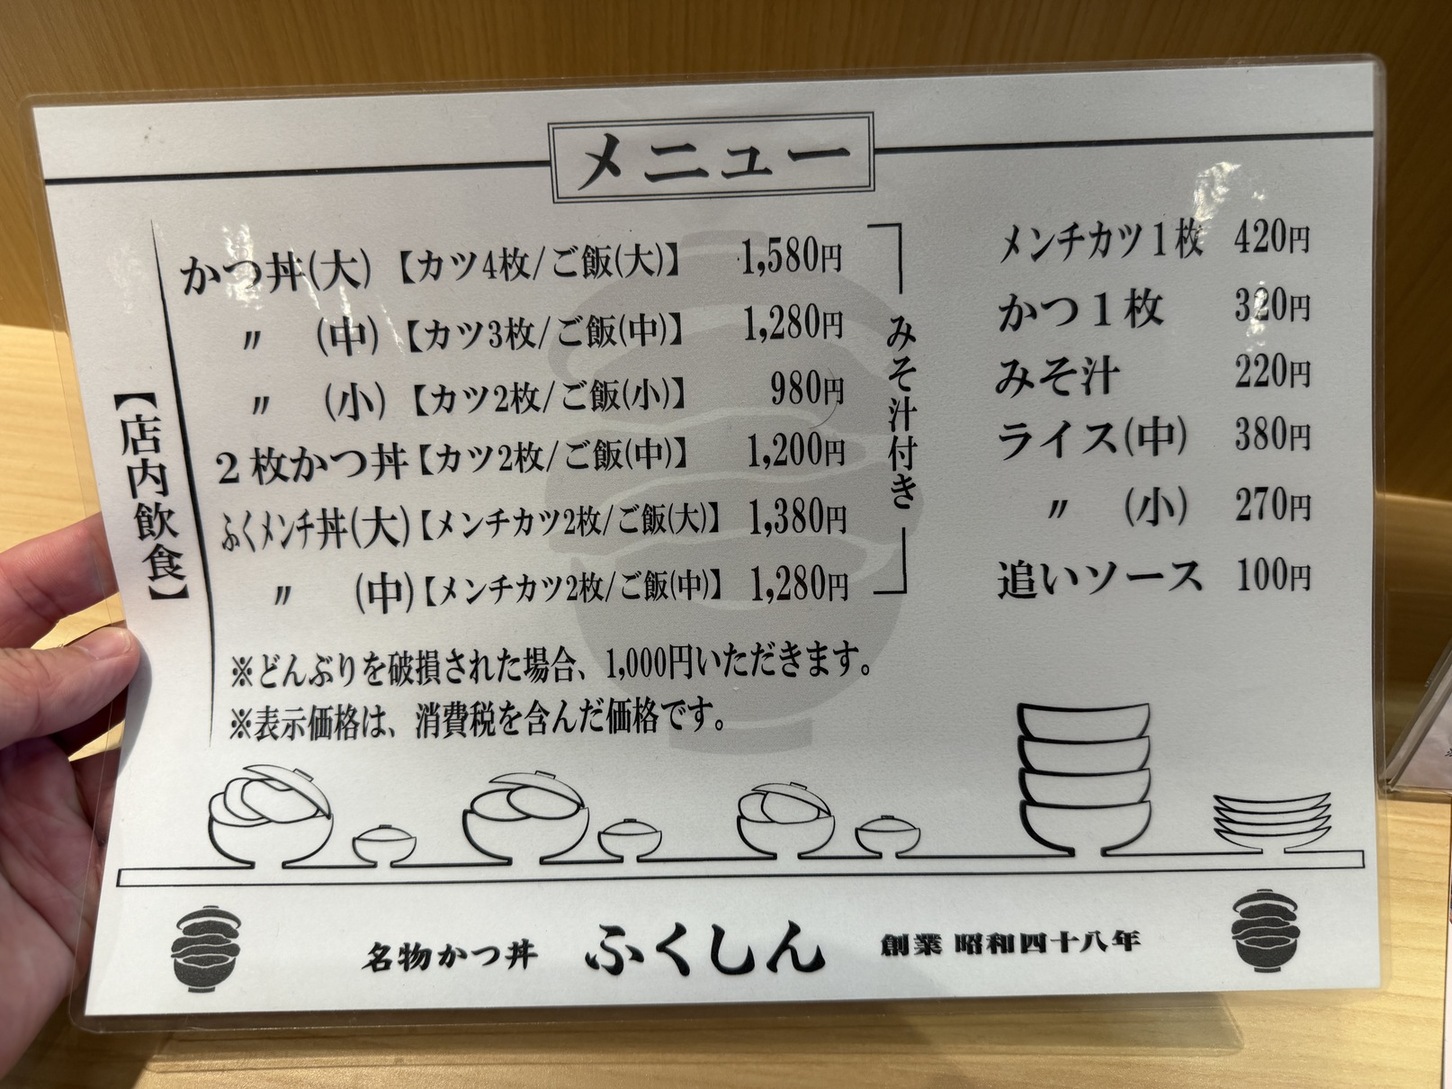 メニュー
【店内飲食】
かつ丼(大)【カツ4枚/ご飯(大)】 1,580円
〃 (中)【カツ3枚/ご飯(中)】 1,280円
〃 (小)【カツ2枚/ご飯(小)】 980円
２枚かつ丼【カツ2枚/ご飯(中)】 1,200円
ふくメンチ丼(大)【メンチカツ2枚/ご飯(大)】 1,380円
〃 (中)【メンチカツ2枚/ご飯(中)】 1,280円
みそ汁付き
※どんぶりを破損された場合、1,000円いただきます。
※表示価格は、消費税を含んだ価格です。
メンチカツ１枚 420円
かつ１枚 320円
みそ汁 220円
ライス(中) 380円
〃 (小) 270円
追いソース 100円
名物かつ丼 ふくしん 創業 昭和四十八年